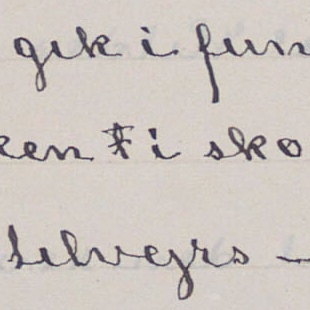 gik i fun
een i sko
tilvejrs –